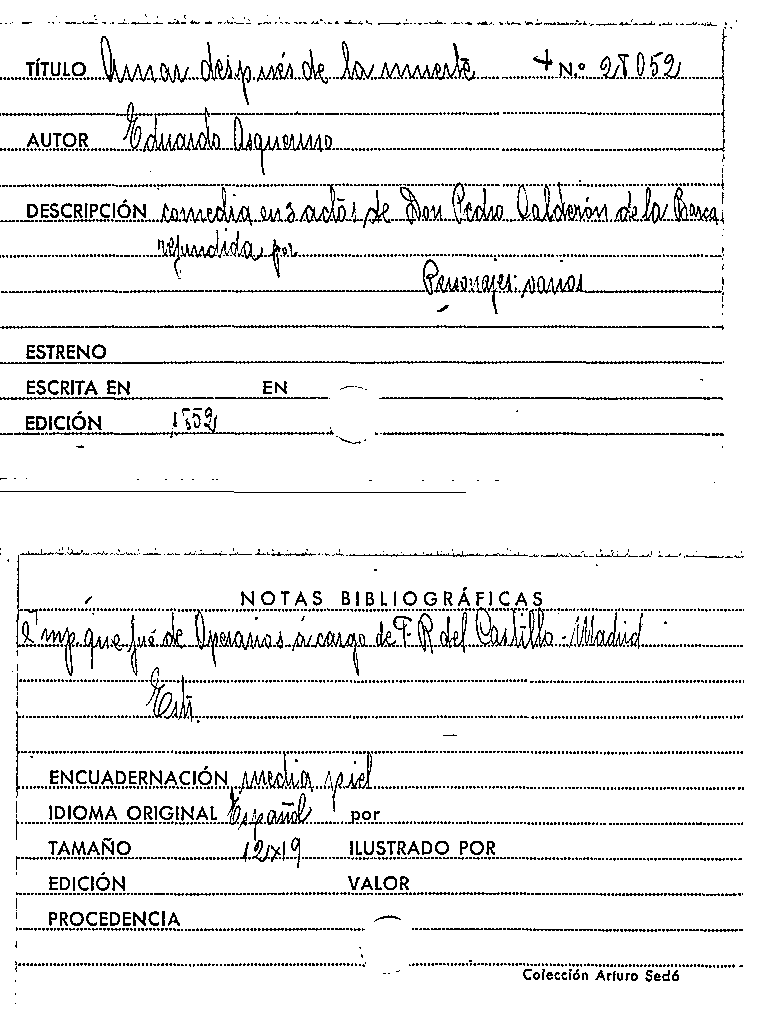 TÍTULO Amar después de la muerte + N.º 28052
AUTOR Eduardo Asquerino
DESCRIPCIÓN comedia en 3 actos de Don Pedro Calderón de la Barca
refundida por
Personajes: varios
ESTRENO
ESCRITA EN EN
EDICIÓN 1852
NOTAS BIBLIOGRÁFICAS
Imp. que fué de Operarios á cargo de F. R. del Castillo - Madrid
ENCUADERNACIÓN media piel
IDIOMA ORIGINAL Español por
TAMAÑO 12x19 ILUSTRADO POR
EDICIÓN VALOR
PROCEDENCIA
Colección Arturo Sedó